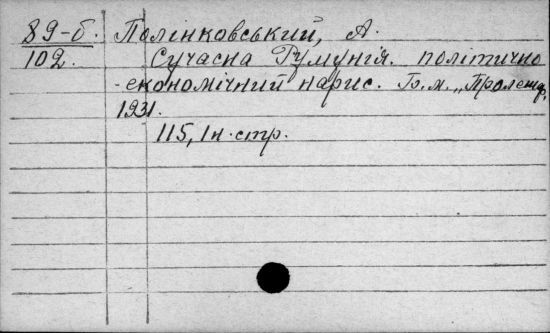 89-б. Полінковський, А.
102. Сучасна Румунія. політично
-економічний нарис. Б.м. „Пролетар",
1931.
115, 1н. стр.